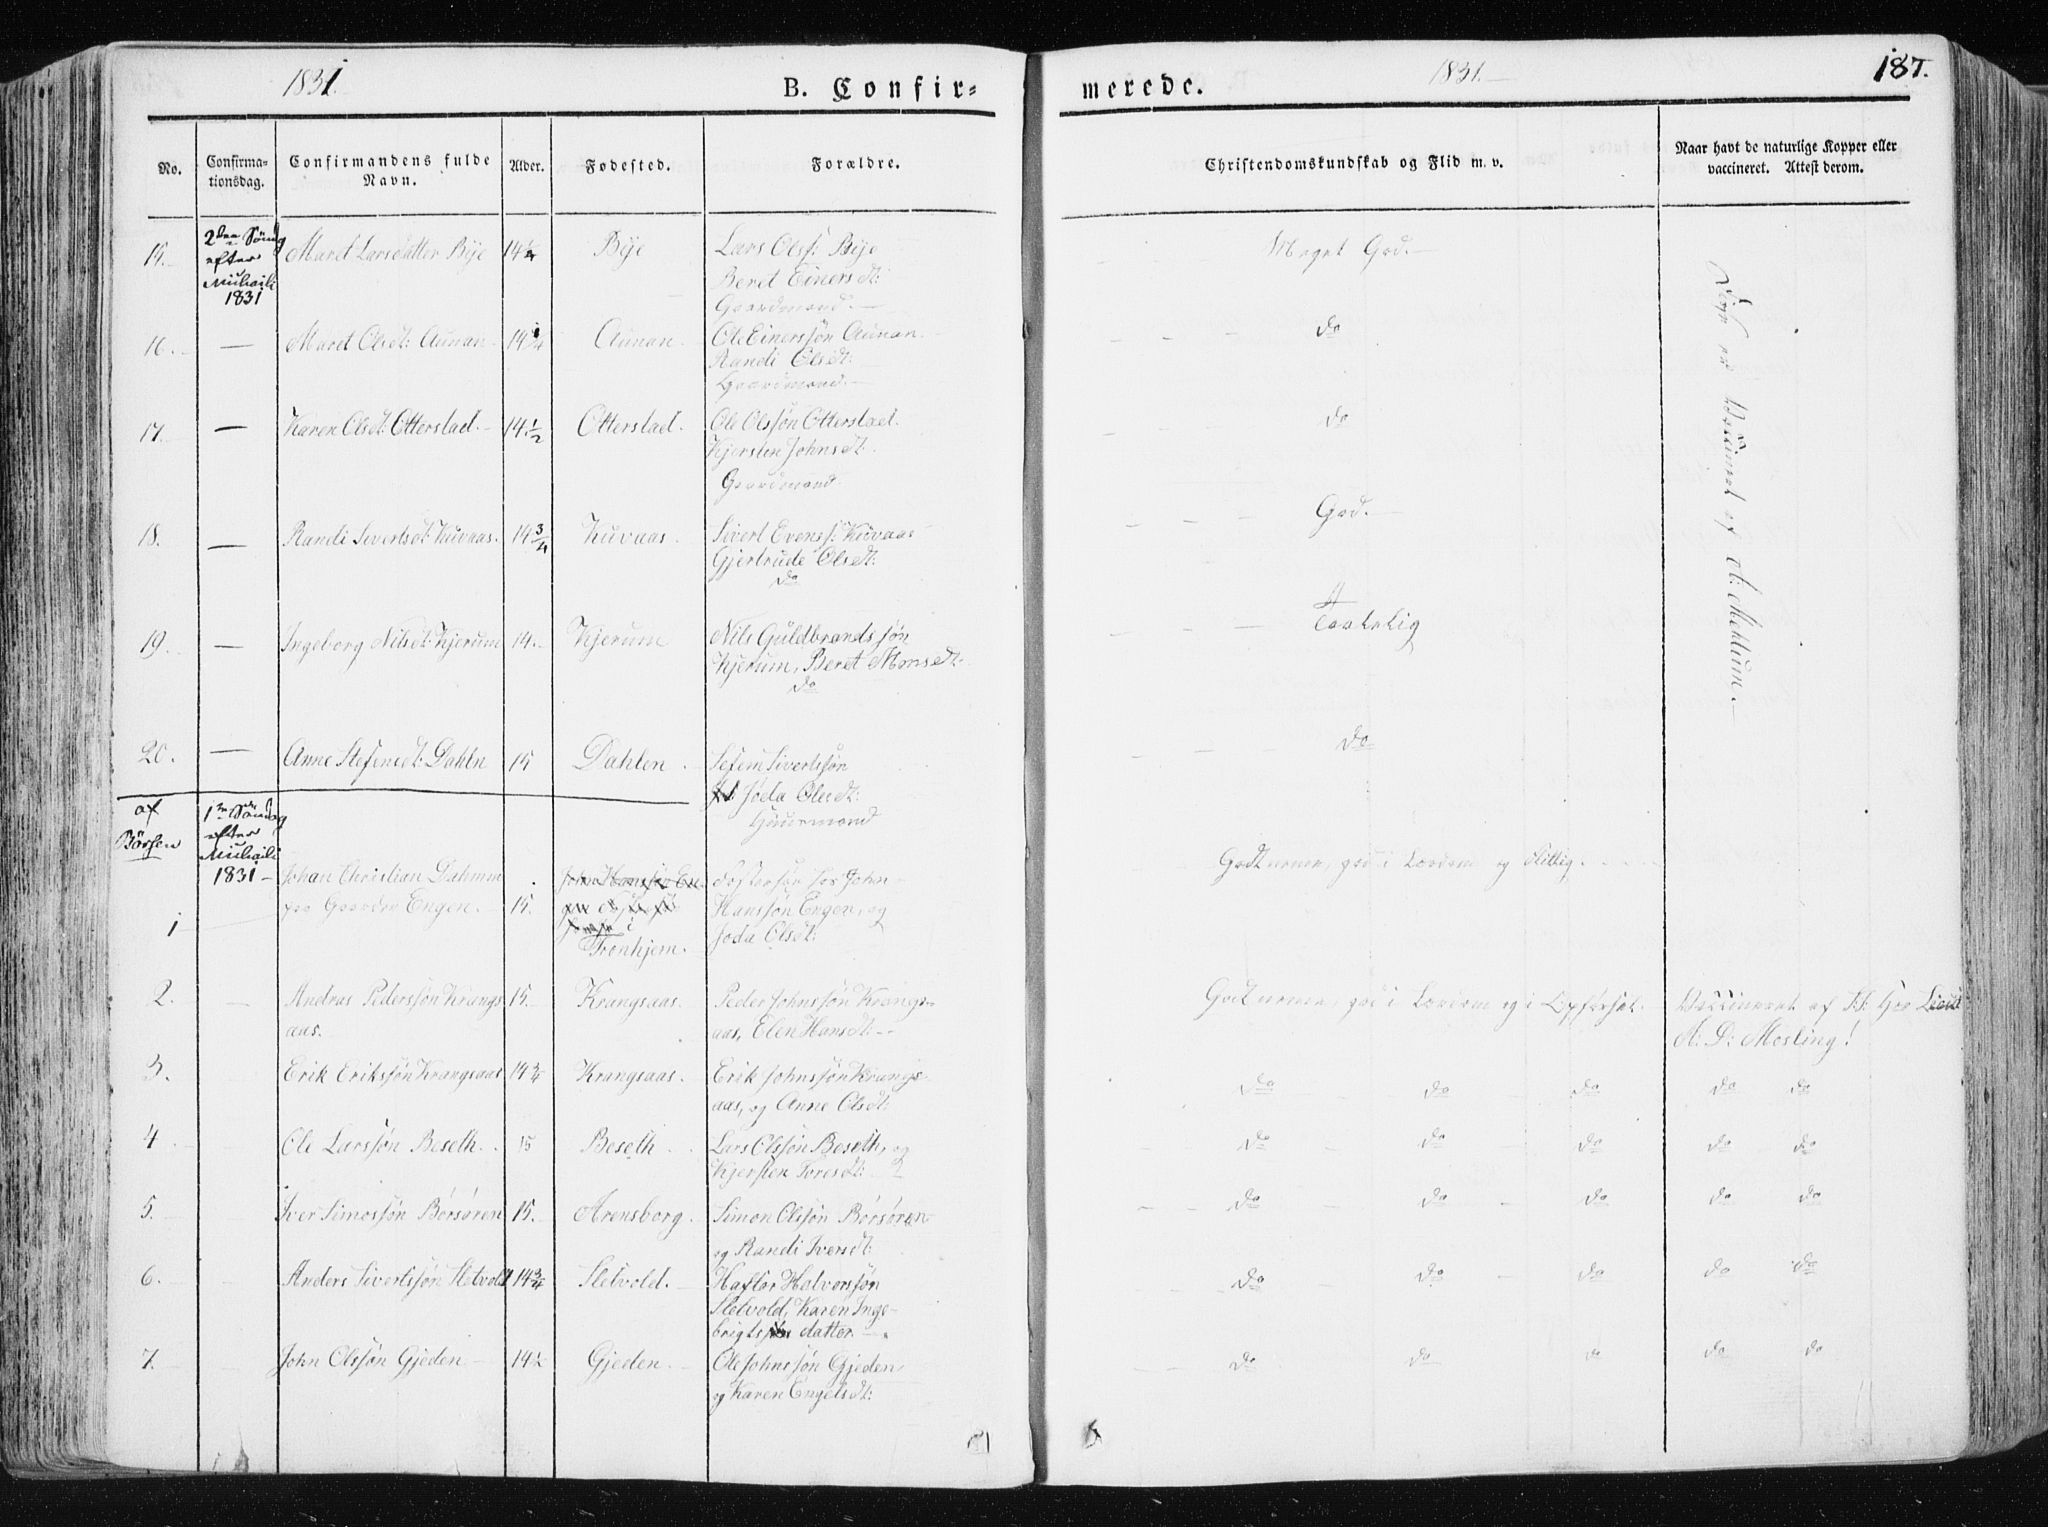 1831.
B. Confir-
merede.
1831.
187.
No.
Confirma-
tionsdag.
Confirmandens fulde
Navn.
Alder.
Fødested.
Forældre.
Christendomskundskab og Flid m. v.
Naar havt de naturlige Kopper eller
vaccineret. Attest derom.
15.
2den Søndg
efter
Michaeli
1831
Maret Larsdatter Bye
14 1/4
Bye
Lars Olss: Bye
Beret Einersdt:
Gaardmand.
Meget God.
16.
Maret Olsdt: Aunan
14 1/4
Aunan.
Ole Einerssøn Aunan.
Randi Olsdt:
Gaardmand.
do
17.
Karen Olsdt: Otterstad.
14 1/2
Otterstad.
Ole Olssøn Otterstad.
Kjersten Johnsdt:
Gaardmand
do
18.
Randi Sivertsdt: Kuvaas.
14 3/4
Kuvaas.
Sivert Evenss: Kuvaas
Gjertrude Olsdt:
do
God.
19.
Ingeborg Nilsdt: Kjerum
14.
Kjerum
Nils Guldbrandssøn
Kjerum, Beret Monsdt:
do
Taalelig
20.
Anne Stefensdt: Dahln
15
Dahlen.
Sefem Sivertssøn
Joda Olsdt:
Huusmand
do
er Vaccineret af A: Mehlum.
af
Børsen
1ste Søndg
efter
Michaeli
1831
1
Johan Christian Dahmm
paa Gaarden Engen.
15.
John Hanssøn En-
i
Tronhjem.
Fostersøn hos John
Hanssøn Engen, og
Joda Olsdt:
Godt nemme, god i Lærdom og flittig.
2.
Andras Pederssøn Krangs
aas.
15.
Krangsaas.
Peder Johnssøn Krangs-
aas, Elen Hansdt:
Godt nemme, god i Lærdom og i Opførsel.
Vaccineret af H: Hr Lieut
A: D: Mosling!
3.
Erik Erikssøn Krangsaas
14 3/4
Krangsaas.
Erik Johnssøn Krangs
aas, og Anne Olsdt:
do do do do do
4
Ole Larssøn Beseth.
15
Beseth
Lars Olssøn Beseth, og
Kjersten Toresdt:
do do do do do
5.
Iver Simossøn Børsøren
15.
Arensborg.
Simon Olssøn Børsøren
og Randi Iversdt:
do do do do do
6.
Anders Sivertssøn Sletvold
14 3/4
Sletvold.
Haftor Halvorssøn
Sletvold, Karen Inge-
brigts datter.
do do do do do
7.
John Olssøn Gjeden
14 1/2
Gjeden.
Ole Johnssøn Gjeden,
og Karen Engelsdt:
do do do do do